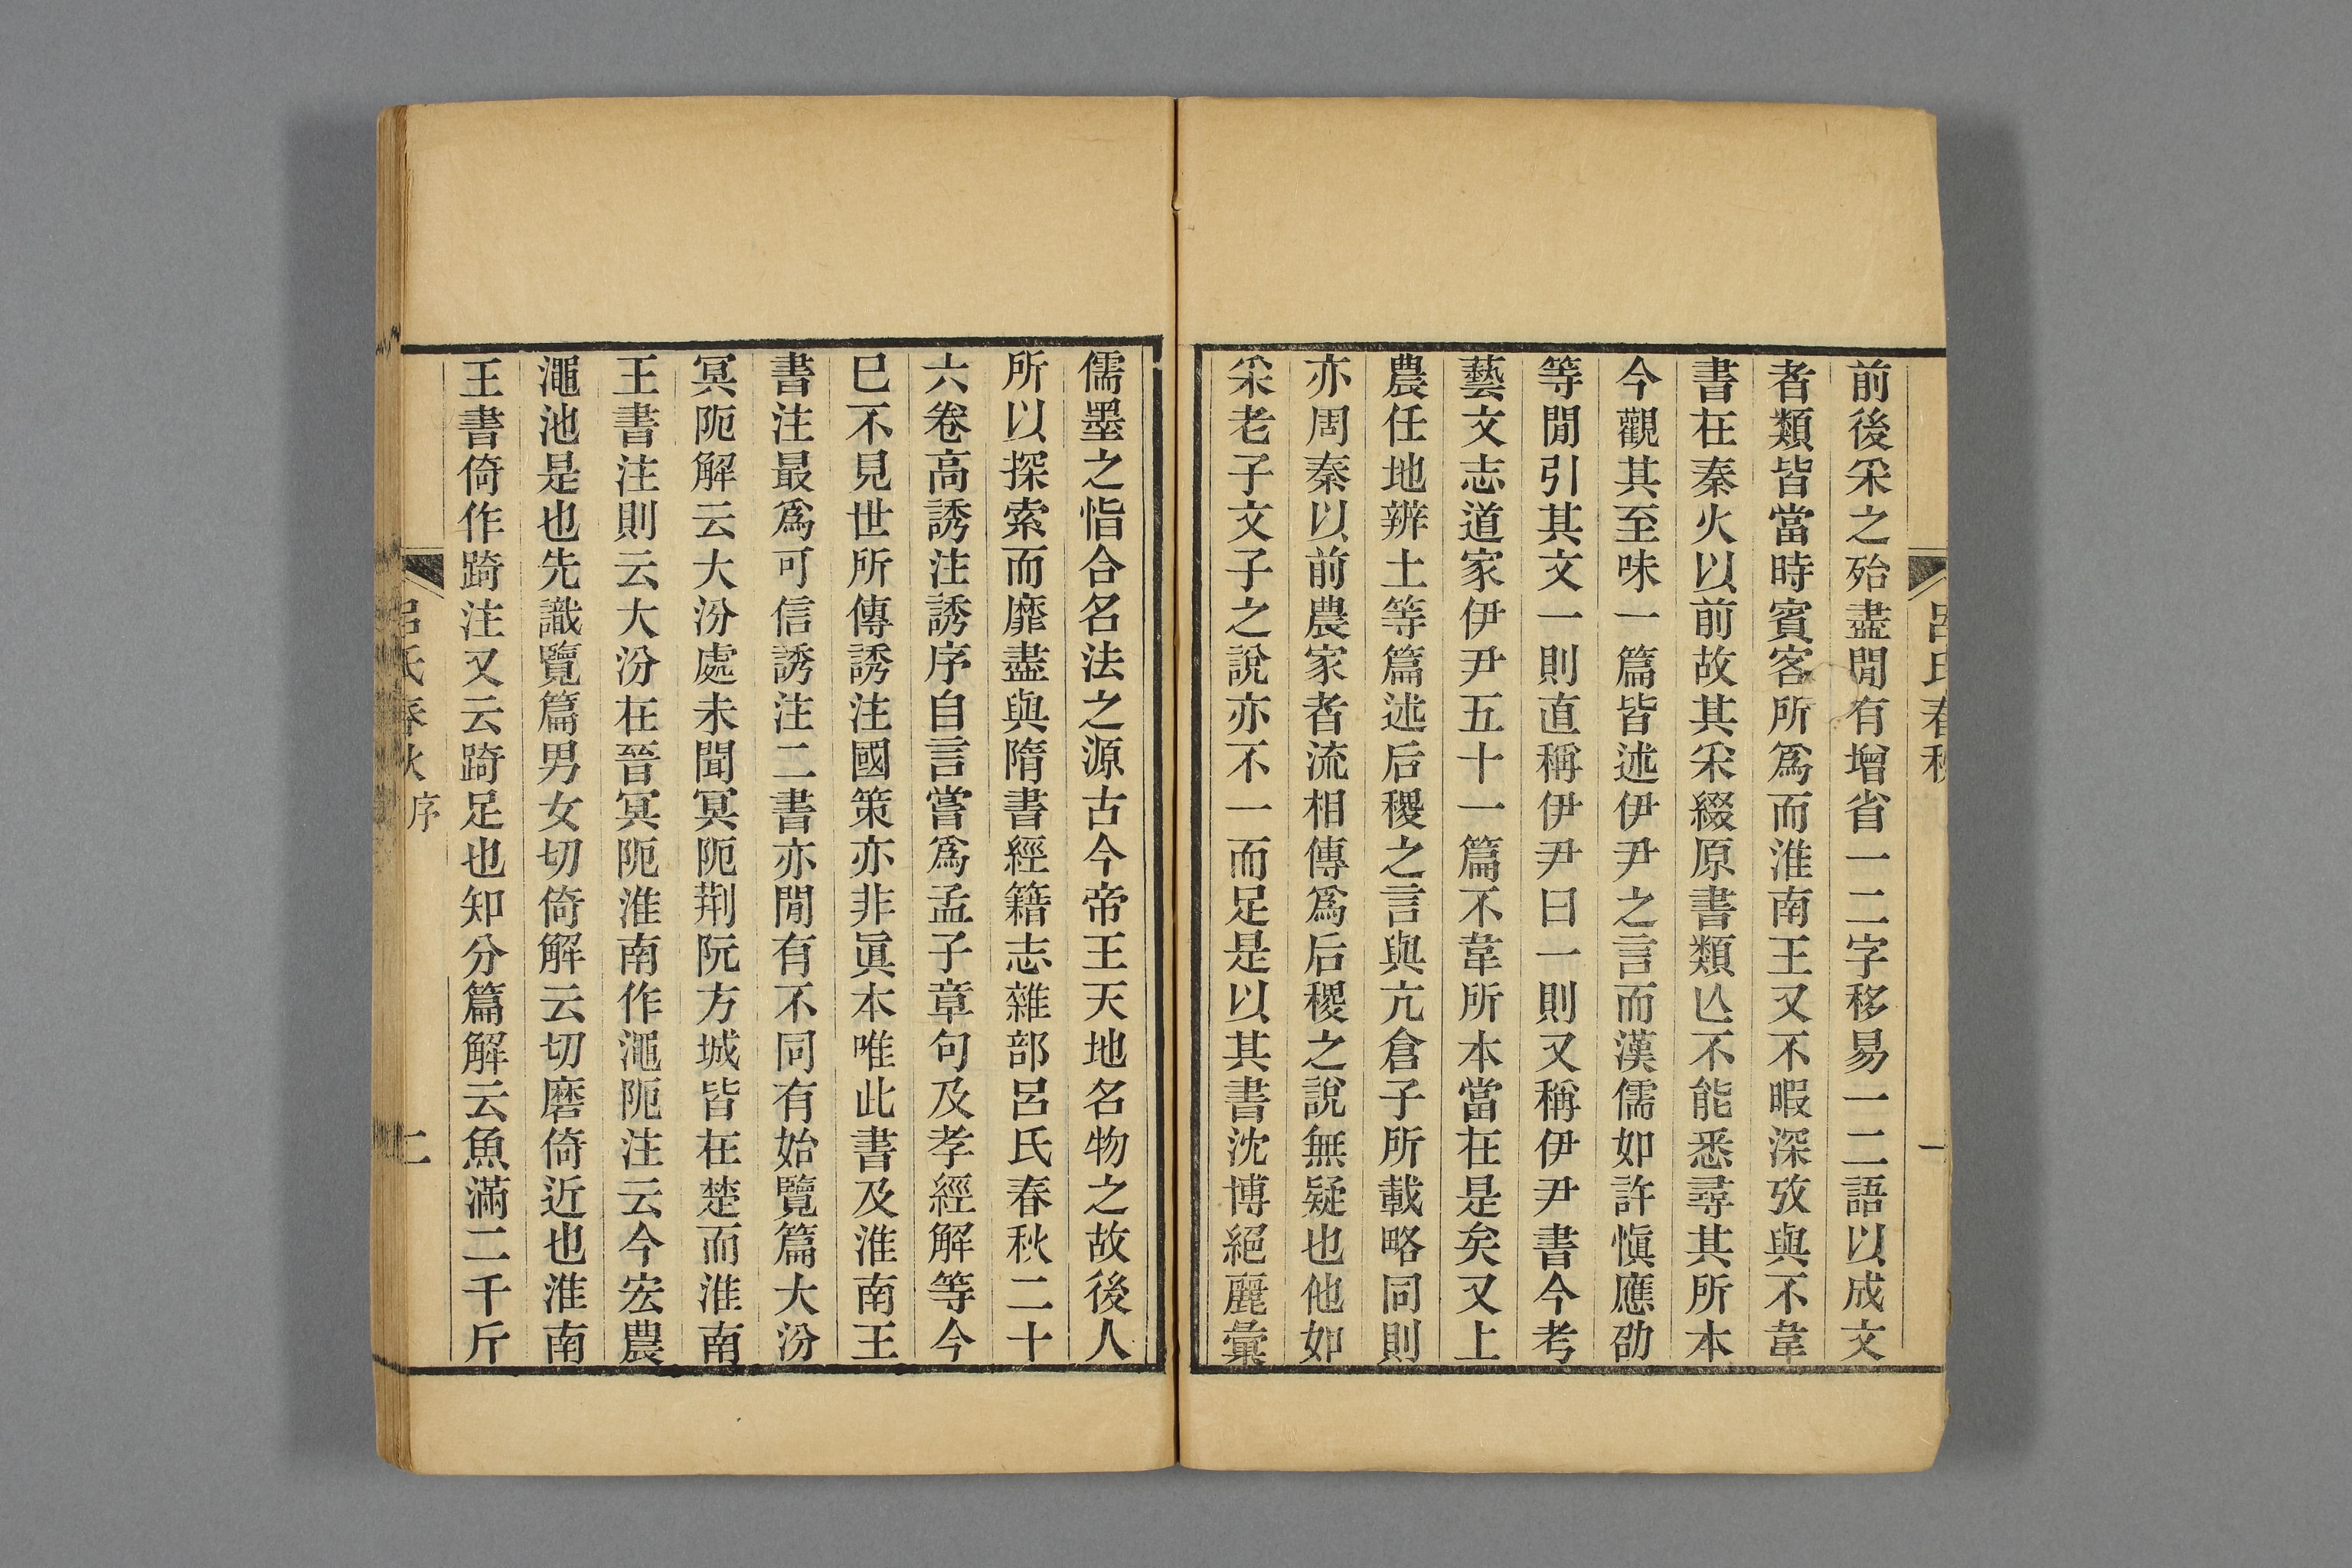 呂氏春秋
一
前後采之殆盡閒有增省一二字移易一二語以成文
者類皆當時賓客所爲而淮南王又不暇深攷與不韋
書在秦火以前故其采綴原書類亾不能悉尋其所本
今觀其至味一篇皆述伊尹之言而漢儒如許愼應劭
等閒引其文一則直稱伊尹曰一則又稱伊尹書今考
藝文志道家伊尹五十一篇不韋所本當在是矣又上
農任地辨土等篇述后稷之言與亢倉子所載略同則
亦周秦以前農家者流相傳爲后稷之說無疑也他如
采老子文子之說亦不一而足是以其書沈博絕麗彙
儒墨之恉合名法之源古今帝王天地名物之故後人
所以探索而靡盡與隋書經籍志雜部呂氏春秋二十
六卷高誘注誘序自言嘗爲孟子章句及孝經解等今
已不見世所傳誘注國策亦非眞本唯此書及淮南王
書注最爲可信誘注二書亦閒有不同有始覽篇大汾
冥阨解云大汾處未聞冥阨荆阮方城皆在楚而淮南
王書注則云大汾在晉冥阨淮南作澠阨注云今宏農
澠池是也先識覽篇男女切倚解云切磨倚近也淮南
王書倚作踦注又云踦足也知分篇解云魚滿二千斤
呂氏春秋 序
二